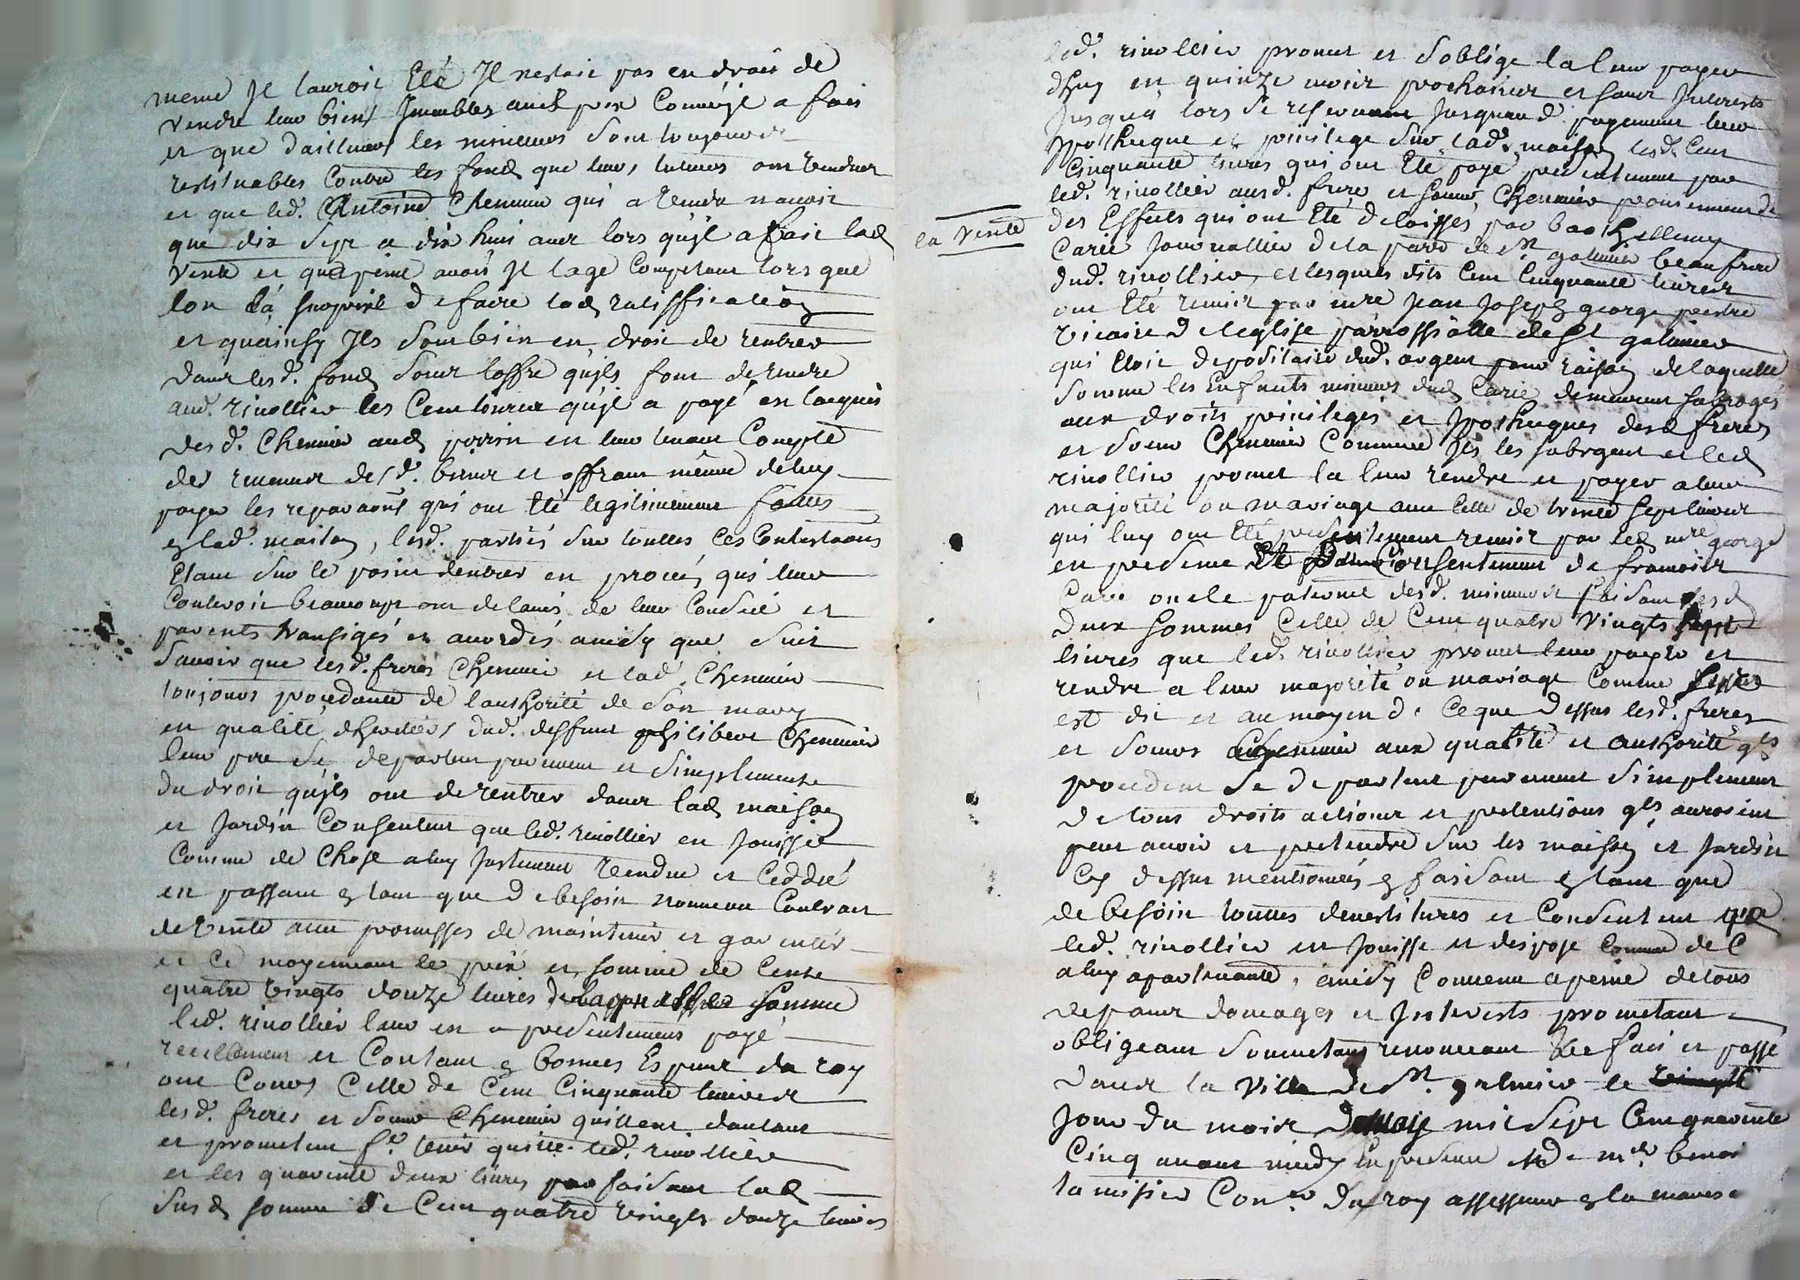 meme Il lauroit Eté Il nestoit pas en droit de
vendre leur bien Immeubles ainsi que Comme il a fait
et que dailleurs les mineurs sont toujours
restituables Contre les fonds que leurs tuteurs ont vendus
et que led. Antoine Chenevier qui a vendu navoit
que dix sept a dix huit ans lors quil a fait lad
vente et qua peine avoit Il lage Competant lors que
lon la de faire lad ratiffication
et quainsy Ils sont bien en droit de rentrer
dans lesd. fonds sous loffre quils font de rendre
aud. rivollier les Cent livres quil a payé en lacquis
desd. Chenevier aud perrin en leur tenant Compte
des revenus desd. biens et offrant même deluy
payer les reparaons qui ont Eté legitimement faites
en lad. maison, lesd. parties sur touttes ces Contestaons
Etant sur le point dentrer en procès, qui leur
Coutteroit beaucoup ont de lavis de leur Conseil et
parents transigés et accordés ainsy que suit
Savoir que lesd. freres Chenevier et lad. Chenevier
toujours procedante de lauthorité de son mary
en qualité dheritiers dud. deffunt philibert Chenevier
leur pere se departent purement et simplement
du droit quils ont de rentrer dans lad maison
et Jardin Consentent que led. rivollier en Jouisse
Comme de Chose a luy Justement vendue et Ceddée
en passant en tant que de besoin nouveau Contract
de vente avec promesses de maintenir et garentir
et ce moyennant le prix et somme de Cent
quatre vingts douze livres de laquelle somme
led. rivollier leur en a presentement payé
reellement et Contant en bonnes Especes du roy
ont Cours Celle de Cent Cinquante livres
lesd. freres et soeur Chenevier quittent dautant
et promettent fe. tenir quitte led. rivollier
et les quarante deux livres parfaisant lad
susd somme de Cent quatre vingts douze livres
led. rivollier promet et soblige la leur payer
dhuy en quinze mois prochains et sans Interests
Jusqua lors se reservant Jusquaud. payement leur
hypotheque et privilege sur lad. maison lesd. Cent
Cinquante livres qui ont Eté payé presentement par
led. rivollier ausd. frere et soeur Chenevier proviennent
des Effets qui ont Eté delaissés par barthellemy
la vente
Carié Journallier de la parr. de St galmier beaufrere
dud. rivollier, et lesquels dits Cent Cinquante livres
ont Eté remis par mre Jean Joseph george pretre
vicaire de leglise parroissialle de St galmier
qui Etoit depositaire dud. argent pour raison de laquelle
somme les Enfants mineurs dud Carié demeurent subrogés
aux droits privileges et Ipotheques desd freres
et soeur Chenevier Comme Ils les subrogent et led
rivollier promet la leur rendre et payer a leur
majorité ou mariage avec Celle de trente sept livres
qui luy ont Eté presentement remis par led mre george
en presence et du Consentement de francois
Carié oncle paternel desd. mineurs faisant lesd
deux sommes Celle de Cent quatre vingts sept
livres que led. rivollier promet leur payer et
rendre a leur majorité ou mariage Comme
est dit et au moyen de ce que dessus lesd. freres
et soeurs Chenevier aux qualité et authorité qls
procedent se departent purement simplement
de tous droits actions et pretentions qls auroient
peut avoir et pretendre sur les maison et Jardin
Cy dessus mentionnés en faisant en tant que
de besoin touttes devestitures et Consentent que
led. rivollier en Jouisse et dispose Comme de C
a luy apartenante, ainsy Convenu a peine de tous
depans domages et Interests promettant
obligeant soumettant renonceant &c fait et passé
dans la Ville de St. galmier le
Jour du mois de may mil sept Cent quarante
Cinq avant midy En presence de mre benoi
la mission Conr. du roy assesseur en la mares